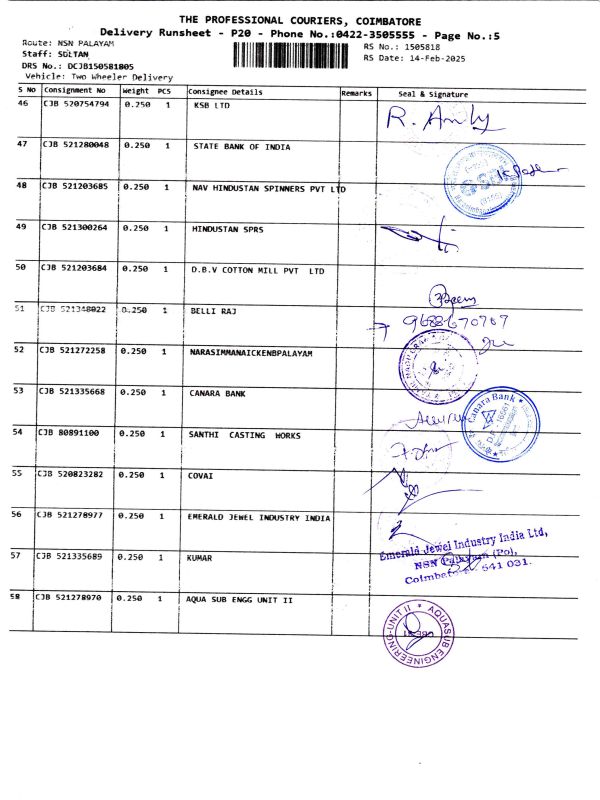 THE PROFESSIONAL COURIERS, COIMBATORE
Delivery Runsheet - P20 - Phone No.:0422-3505555 - Page No.:5
Route: NSN PALAYAM
RS No.: 1505818
Staff: SULTAN
RS Date: 14-Feb-2025
DRS No.: DCJB150581805
Vehicle: Two Wheeler Delivery
S No Consignment No Weight PCS Consignee Details Remarks Seal & Signature
46 CJB 520754794 0.250 1 KSB LTD
47 CJB 521280048 0.250 1 STATE BANK OF INDIA
48 CJB 521203685 0.250 1 NAV HINDUSTAN SPINNERS PVT LTD
49 CJB 521300264 0.250 1 HINDUSTAN SPRS
50 CJB 521203684 0.250 1 D.B.V COTTON MILL PVT LTD
51 CJB 521348022 0.250 1 BELLI RAJ
9688670707
52 CJB 521272258 0.250 1 NARASIMMANAICKENBPALAYAM
53 CJB 521335668 0.250 1 CANARA BANK
Canara Bank
54 CJB 80891100 0.250 1 SANTHI CASTING WORKS
55 CJB 520823282 0.250 1 COVAI
56 CJB 521278977 0.250 1 EMERALD JEWEL INDUSTRY INDIA
Emerald Jewel Industry India Ltd,
NSN Palayam (Po),
Coimbatore 641 031.
57 CJB 521335689 0.250 1 KUMAR
58 CJB 521278970 0.250 1 AQUA SUB ENGG UNIT II
AQUASUB ENGINEERING-UNIT II